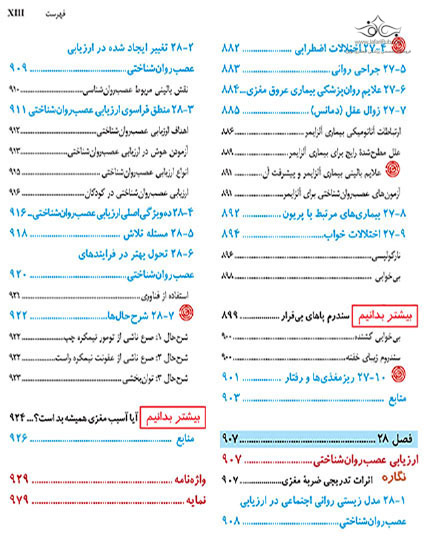 فهرست XIII
۲۷-۴ اختلالات اضطرابی ۸۸۲
۲۷-۵ جراحی روانی ۸۸۳
۲۷-۶ علایم روان‌پزشکی بیماری عروق مغزی ۸۸۴
۲۷-۷ زوال عقل (دمانس) ۸۸۵
ارتباطات آناتومیکی بیماری آلزایمر ۸۸۶
علل مطرح‌شدهٔ رایج برای بیماری آلزایمر ۸۸۹
علایم بالینی بیماری آلزایمر و پیشرفت آن ۸۹۱
آزمون‌های عصب‌روان‌شناختی برای آلزایمر ۸۹۱
۲۷-۸ بیماری‌های مرتبط با پریون ۸۹۲
۲۷-۹ اختلالات خواب ۸۹۴
نارکولپسی ۸۹۶
بی‌خوابی ۸۹۸
بیشتر بدانیم سندرم پاهای بی‌قرار ۸۹۹
بی‌خوابی کشنده ۹۰۰
سندروم زیبای خفته ۹۰۰
۲۷-۱۰ ریزمغذی‌ها و رفتار ۹۰۱
منابع ۹۰۳
فصل ۲۸ ۹۰۷
ارزیابی عصب‌روان‌شناختی ۹۰۷
نگاره اثرات تدریجی ضربهٔ مغزی ۹۰۷
۲۸-۱ مدل زیستی روانی اجتماعی در ارزیابی
عصب‌روان‌شناختی ۹۰۸
۲۸-۲ تغییر ایجاد شده در ارزیابی
عصب‌روان‌شناختی ۹۰۹
نقش بالینی مربوط عصب‌روان‌شناسی ۹۱۰
۲۸-۳ منطق فراسوی ارزیابی عصب‌روان‌شناختی ۹۱۱
اهداف ارزیابی عصب‌روان‌شناختی ۹۱۲
آزمودن هوش در ارزیابی عصب‌روان‌شناختی ۹۱۳
انواع ارزیابی عصب‌روان‌شناختی ۹۱۵
ارزیابی عصب‌روان‌شناختی در کودکان ۹۱۶
۲۸-۴ ده‌ویژگی‌اصلی ارزیابی عصب‌روان‌شناختی ۹۱۶
۲۸-۵ مسئله تلاش ۹۱۸
۲۸-۶ تحول بهتر در فرایندهای
عصب‌روان‌شناختی ۹۲۰
استفاده از فناوری ۹۲۱
۲۸-۷ شرح‌حال‌ها ۹۲۲
شرح‌حال ۱: صرع ناشی از تومور نیمکره چپ ۹۲۲
شرح‌حال ۲: صرع ناشی از عفونت نیمکره راست ۹۲۲
شرح‌حال ۳: توان‌بخشی ۹۲۳
بیشتر بدانیم آیا آسیب مغزی همیشه بد است؟ ۹۲۴
منابع ۹۲۶
واژه‌نامه ۹۲۹
نمایه ۹۷۹